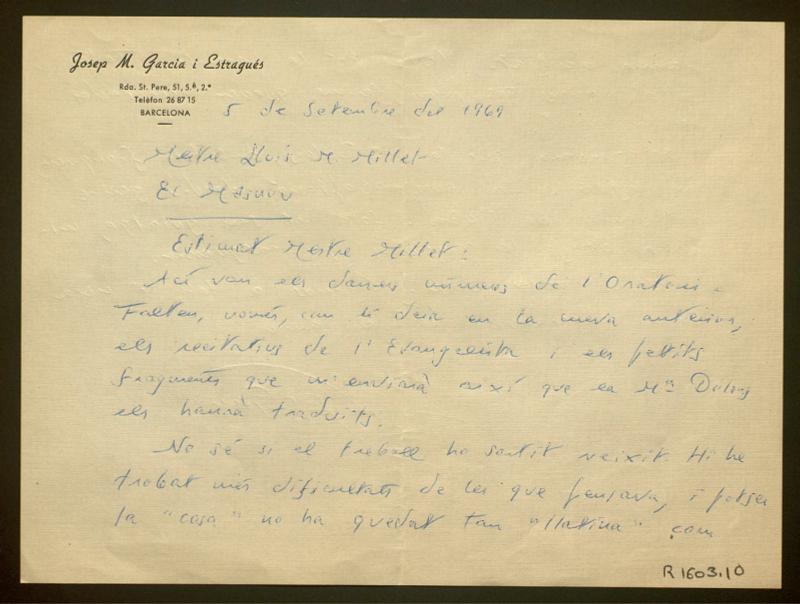 Josep M. Garcia i Estragués
Rda. St. Pere, 51, 5.è, 2.ª
Telèfon 26 87 15
BARCELONA
5 de Setembre del 1969
Mestre Lluís M. Millet
El Masnou
Estimat Mestre Millet:
Ací van els darrers números de l'Oratori.
Falten, només, com li deia en la meva anterior,
els recitatius de l'Evangelista i els petits
fragments que m'enviarà així que la Mª Dolors
els haurà traduïts.
No sé si el treball ha sortit reixit. Hi he
trobat més dificultats de les que pensava, i potser
la "cosa" no ha quedat tan "llatina" com
R 1603.10